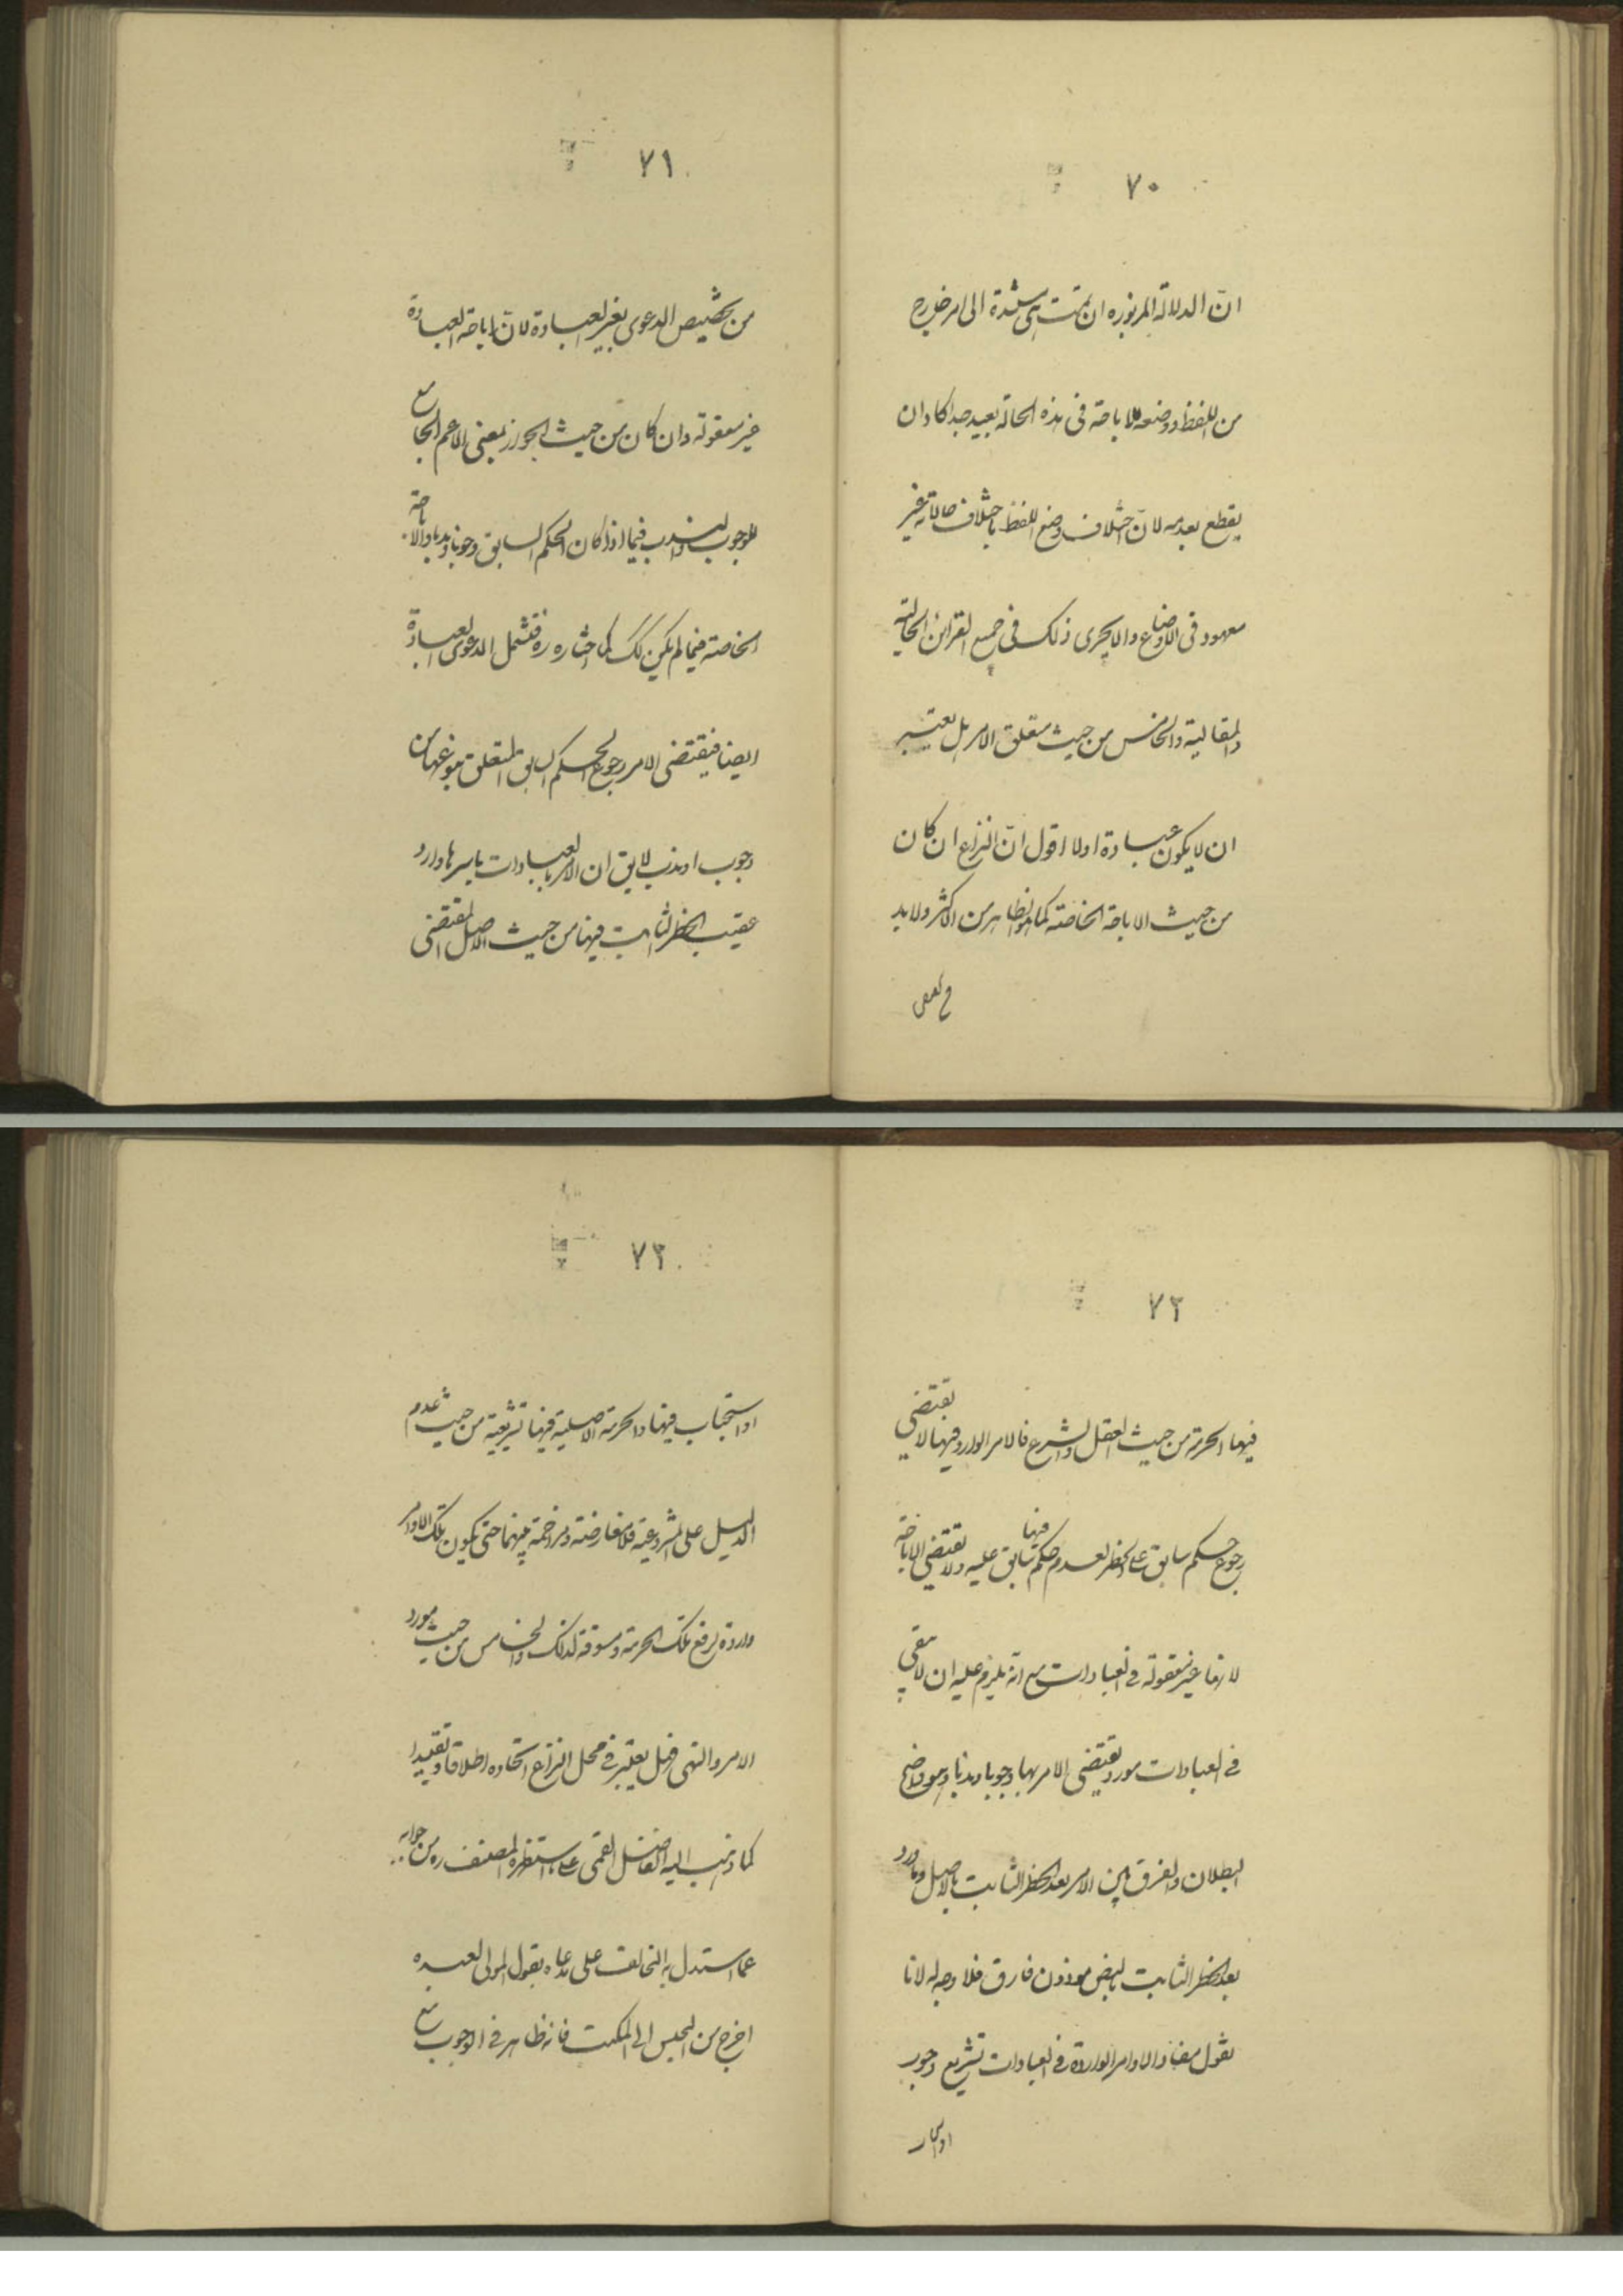 ٧٠
انّ الدلالة المزبورة ان تمت مستندة الى امر خارج
من اللفظ ووضعه للاباحة فى هذه الحالة بعيد جدا كاد ان
يقطع بعدمه لانّ اختلاف وضع اللفظ باختلاف حالاته غير
معهود فى الاوضاع والا يجرى ذلك فى جميع القرائن الحالية
والمقالية والخامس من حيث متعلق الامر بل يعتبر
ان لا يكون عبادة اولا اقول انّ النزاع ان كان
من حيث الاباحة الخاصة كما هو الظاهر من الاكثر ولا بد
٧١
من تخصيص الدعوى بغير العبادة لانّ اباحة العبادة
غير معقولة وان كان من حيث الجواز بمعنى الاعم الجامع
للوجوب والندب فيما اذا كان الحكم السابق وجوبا وندبا والاباحة
الخاصة فيما لم يكن كك كما اختاره ره فتشمل الدعوى العبادة
ايضا فيقتضى الامر رجوع الحكم السابق المتعلق بنوعها من
وجوب او ندب لا يق ان الامر بالعبادات باسرها وارد
عقيب الحظر الثابت فيها من حيث الاصل المقتضى
٧٢
فيها الحرمة من حيث العقل والشرع فالامر الوارد فيها لا يقتضى
رجوع حكم سابق على الحظر لعدم حكم فيها سابق عليه ولا تقتضى الاباحة
لانها غير معقولة فى العبادات مع انه يلزم عليه ان لا يبقى
فى العبادات مورد يقتضى الامر بها وجوبا وندبا وهو واضح
البطلان والفرق بين الامر بعد الحظر الثابت بالاصل وما ورد
بعد الحظر الثابت بالنص فارق فلا وجه له لانا
نقول مفاد الاوامر الواردة فى العبادات تشريع وجوب
٧٣
او استحباب فيها والحرمة الاصلية فيها تشريعية من حيث عدم
الدليل على المشروعية فلا معارضة ومزاحمة بينهما حتى يكون تلك الاوامر
واردة لرفع تلك الحرمة ومسوقة لذلك والخامس من حيث مورد
الامر والنهى فهل يعتبر فى محل النزاع اتحاده اطلاقا وتقييدا
كما ذهب اليه الفاضل القمى على ما استظهره المصنف ره من جوابه
عما استدل به المخالف على مدعاه بقول المولى لعبده
اخرج من المحبس الى المكتب فانه ظاهر فى الوجوب مع